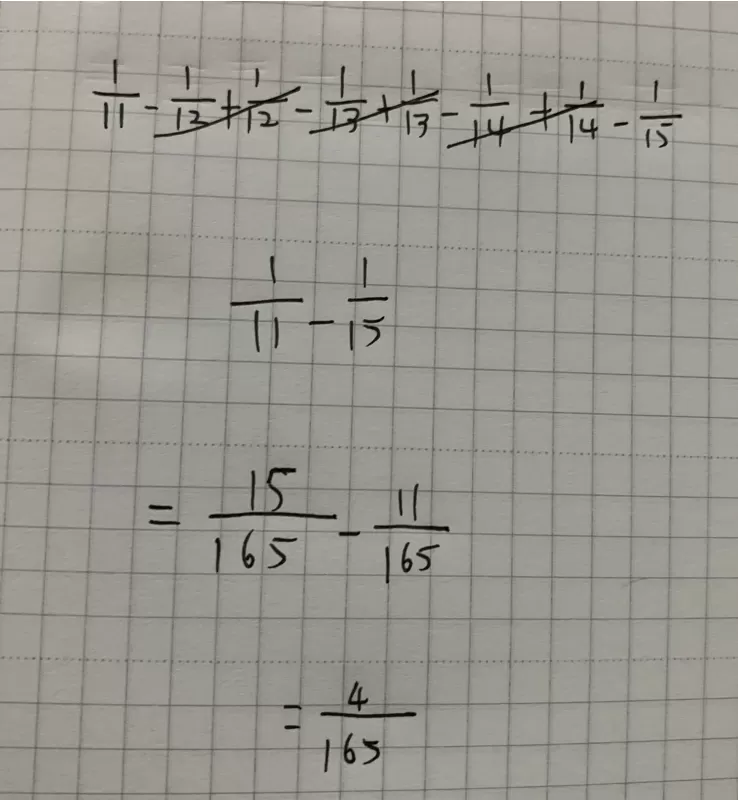 1/11 - 1/12 + 1/12 - 1/13 + 1/13 - 1/14 + 1/14 - 1/15
1/11 - 1/15
= 15/165 - 11/165
= 4/165